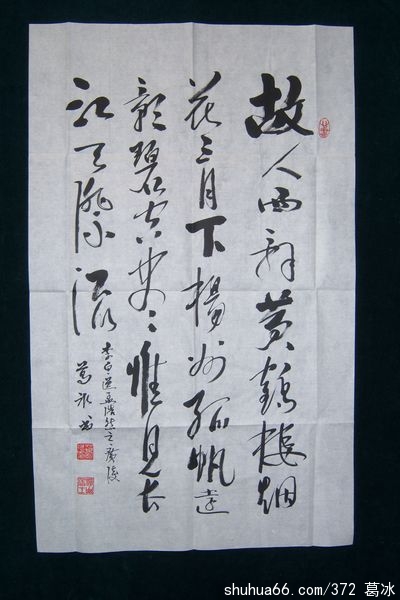 故人西辞黄鶴樓烟
花三月下揚州孤帆遠
影碧空盡惟見长
江天際流
李白送孟浩然之廣陵
葛冰书
shuhua66.com/372 葛冰